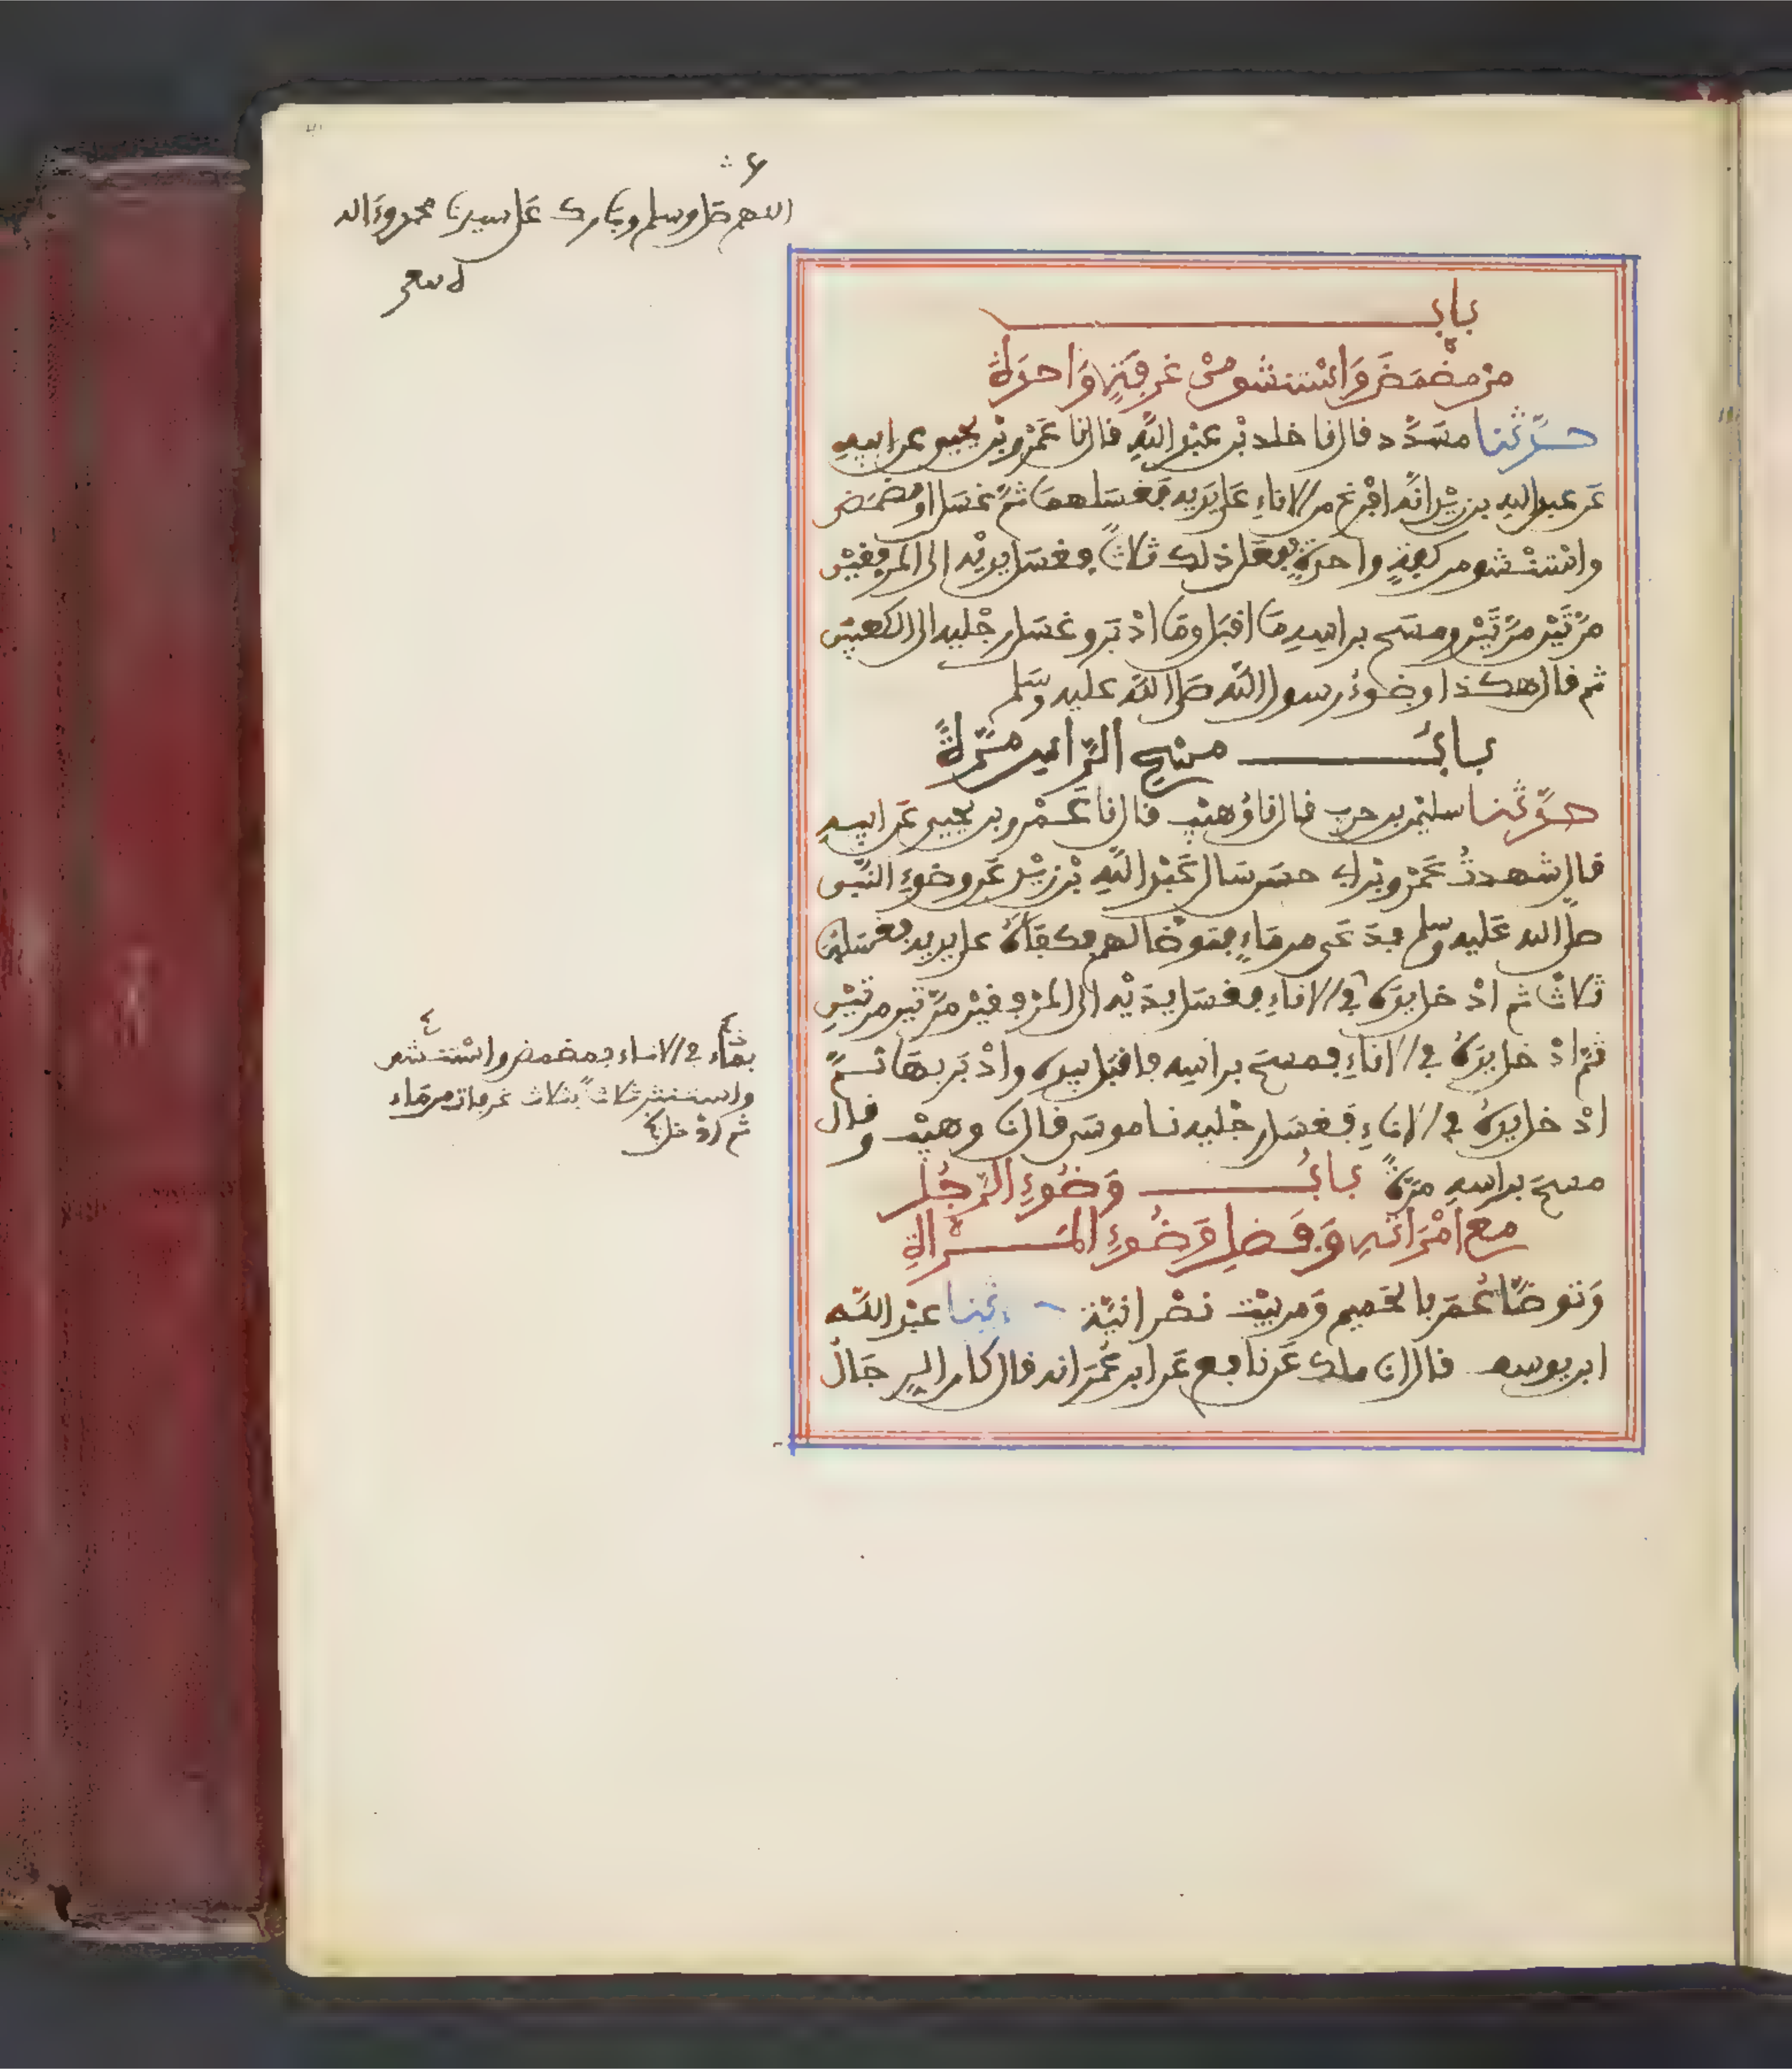 اللهم صل وسلم وبارك على سيدنا محمد وءاله
باب
من مضمض واستنشق من غرفة واحدة
حدثنا مسدد قال نا خلد بن عبد الله قال نا عمرو بن يحيى عن ابيه
عن عبد الله بن زيد انه افرغ من الاناء على يديه فغسلهما ثم غسل او مضمض
واستنشق من كفة واحدة ففعل ذلك ثلاثا فغسل يديه الى المرفقين
مرتين مرتين ومسح براسه ما اقبل وما ادبر وغسل رجليه الى الكعبين
ثم قال هكذا وضوء رسول الله صلى الله عليه وسلم
باب مسح الراس مرة
حدثنا سليمن بن حرب قال نا وهيب قال نا عمرو بن يحيى عن ابيه
قال شهدت عمرو بن ابي حسن سال عبد الله بن زيد عن وضوء النبي
صلى الله عليه وسلم فدعى من ماء فتوضا لهم فكفاه على يديه فغسلهما
ثلاثا ثم ادخل يده في الاناء فغسل يديه الى المرفقين مرتين مرتين
ثم ادخل يده في الاناء فمسح براسه فاقبل بيده وادبر بها ثم
ادخل يده في الاناء فغسل رجليه نا موسى قال نا وهيب وقال
مسح براسه مرة باب وضوء الرجل
مع امراته وفضل وضوء المراة
وتوضا عمر بالحميم ومن بيت نصرانية ثنا عبد الله
ابن يوسف قال انا ملك عن نافع عن ابن عمر انه قال كان الرجال
بماء في الاناء فمضمض واستنشق
واستنثر ثلاثا بثلاث غرفات من ماء
ثم ادخل